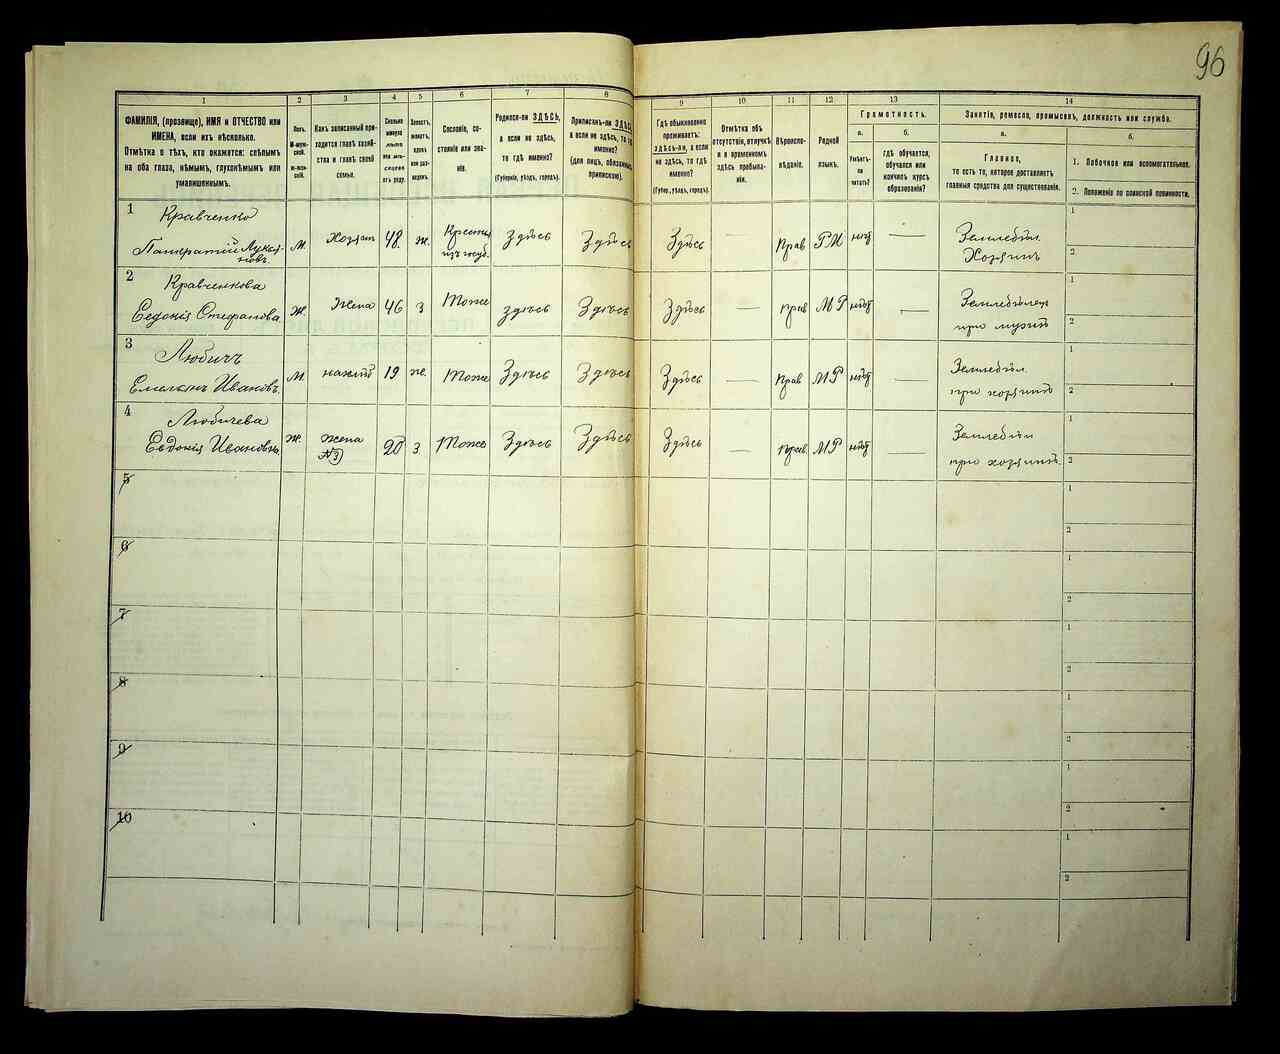 96
1
2
3
4
5
6
7
8
9
10
11
12
13
14
ФАМИЛІЯ, (прозвище), ИМЯ и ОТЧЕСТВО или
ИМЕНА, если ихъ нѣсколько.
Отмѣтка о тѣхъ, кто окажется: слѣпымъ
на оба глаза, нѣмымъ, глухонѣмымъ или
умалишеннымъ.
Полъ.
М-муж-
ской.
Ж-жен-
скій.
Какъ записанный при-
ходится главѣ хозяй-
ства и главѣ своей
семьи.
Сколько
минуло
лѣтъ
или мѣ-
сяцевъ
отъ роду.
Холостъ,
женатъ,
вдовъ
или раз-
веденъ.
Сословіе, со-
стояніе или зва-
ніе.
Родился-ли ЗДѢСЬ,
а если не здѣсь,
то гдѣ именно?
(Губернія, уѣздъ, городъ).
Приписанъ-ли ЗДѢСЬ,
а если не здѣсь, то гдѣ
именно?
(для лицъ, обязанныхъ
припискою).
Гдѣ обыкновенно
проживаетъ:
здѣсь-ли, а если
не здѣсь, то гдѣ
именно?
(Губер., уѣздъ, городъ).
Отмѣтка объ
отсутствіи, отлучкѣ
и о временномъ
здѣсь пребыва-
ніи.
Вѣроиспо-
вѣданіе.
Родной
языкъ.
Грамотность.
а.
Умѣетъ-
ли
читать?
б.
гдѣ обучается,
обучался или
кончилъ курсъ
образованія?
Занятіе, ремесло, промыселъ, должность или служба.
а.
Главное,
то есть то, которое доставляетъ
главныя средства для существованія.
б.
1. Побочное или вспомогательное.
2. Положеніе по воинской повинности.
1 Кравченко
Панкратій Лукья-
новъ. М. Хозяин 48 ж. Крестья
изъ Здѣсь Здѣсь Здѣсь Прав нѣтъ — Земледѣл.
Хозяинъ
1
2
2 Кравченкова
Евдокія Стефанова Ж. Жена 46 З Тоже Здѣсь Здѣсь Здѣсь — Прав МР нѣтъ — Земледѣлец
при мужѣ
1
2
3 Любичъ
Емельянъ Ивановъ. М. 19 ж. Тоже Здѣсь Здѣсь Здѣсь — Прав МР нѣтъ — Земледѣл.
при хозяинѣ
1
2
4 Любичева
Евдокія Ивановна Ж. жена
№3 20 З. Тоже Здѣсь Здѣсь Здѣсь — Прав. МР нѣтъ — Земледѣл
при хозяинѣ.
1
2
5
1
2
6
1
2
7
1
2
8
1
2
9
1
2
10
1
2